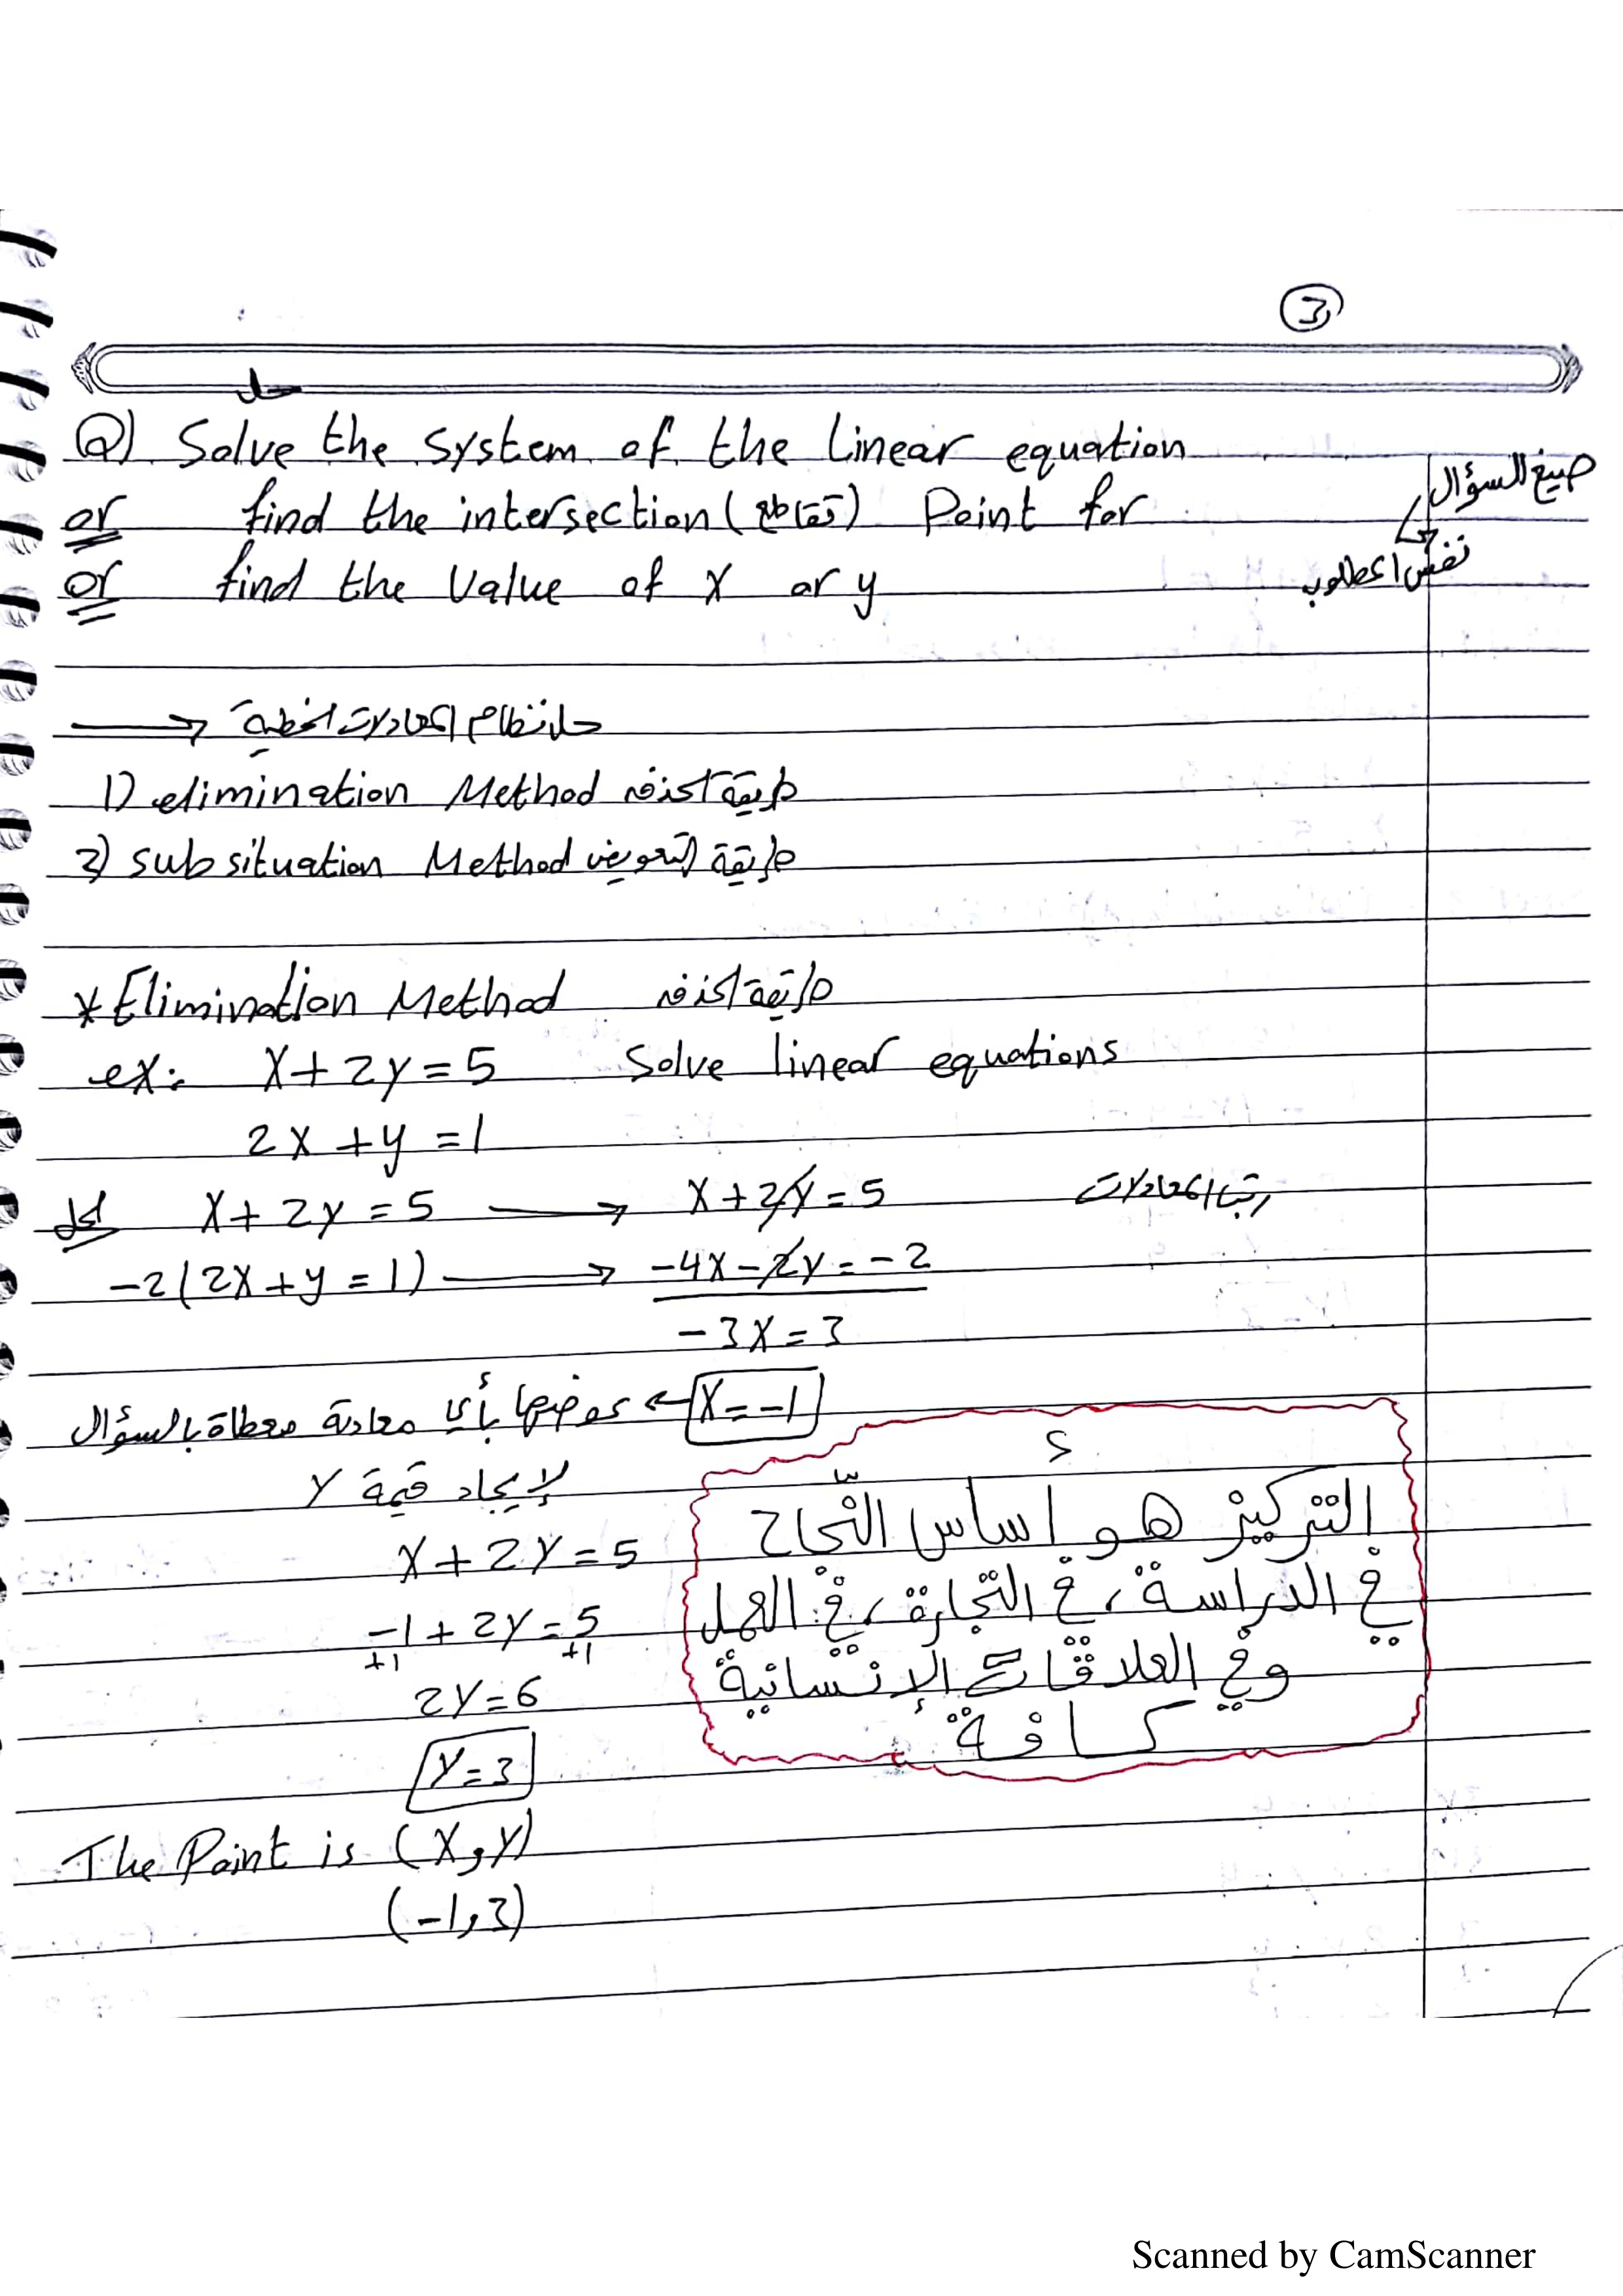 3
حل
Q) Solve the system of the linear equation
صيغ السؤال
or find the intersection (تقاطع) Point for
or find the value of x or y
نفس المطلوب
حل نظام المعادلات الخطية
1) elimination Method طريقة الحذف
2) subsituation Method طريقة التعويض
* Elimination Method طريقة الحذف
ex: x + 2y = 5 Solve linear equations
2x + y = 1
الحل x + 2y = 5 → x + 2y = 5 رتب المعادلات
-2(2x + y = 1) → -4x - 2y = -2
-3x = 3
x = -1 → عوضها بأي معادلة معطاة بالسؤال
لإيجاد قيمة y
x + 2y = 5
-1 + 2y = 5
+1 +1
2y = 6
y = 3
The Point is (x, y)
(-1, 3)
التركيز هو أساس النّجاح
في الدراسة، في التجارة، في العمل
وفي العلاقات الإنسانية
كافة
Scanned by CamScanner